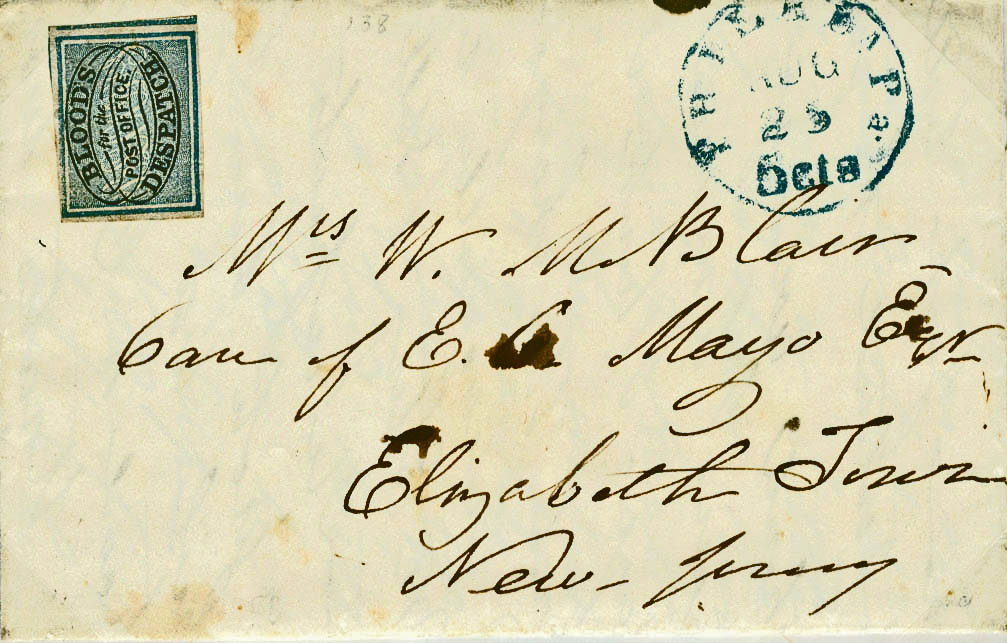 '38
BLOOD'S
for the
POST OFFICE
DESPATCH
PHILADA Pa.
AUG
25
5cts
Mrs W. M Blair
Care of E. C. Mayo Esqr
Elizabeth Town
New Jersey